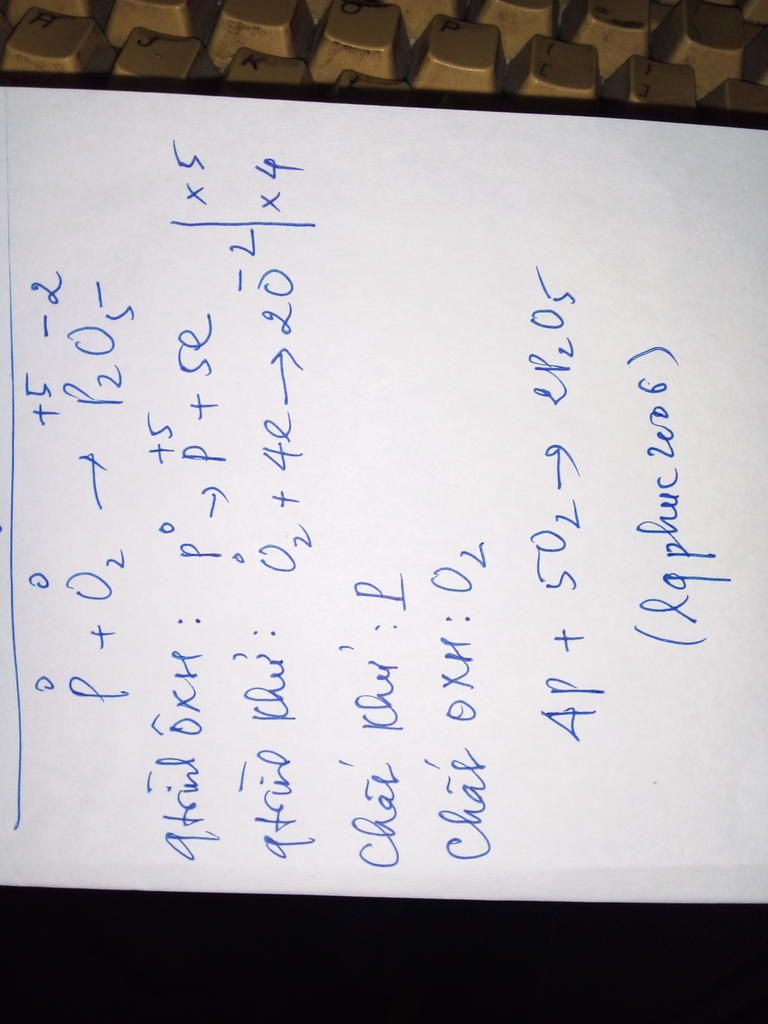 P⁰ + O₂⁰ → P₂⁺⁵O₅⁻²
qtrình ÔXH: P⁰ → P⁺⁵ + 5e | x 5
qtrình khử: O₂⁰ + 4e → 2O⁻² | x 4
Chất khử: P
Chất OXH: O₂
4P + 5O₂ → 2P₂O₅
(lqphuc2006)